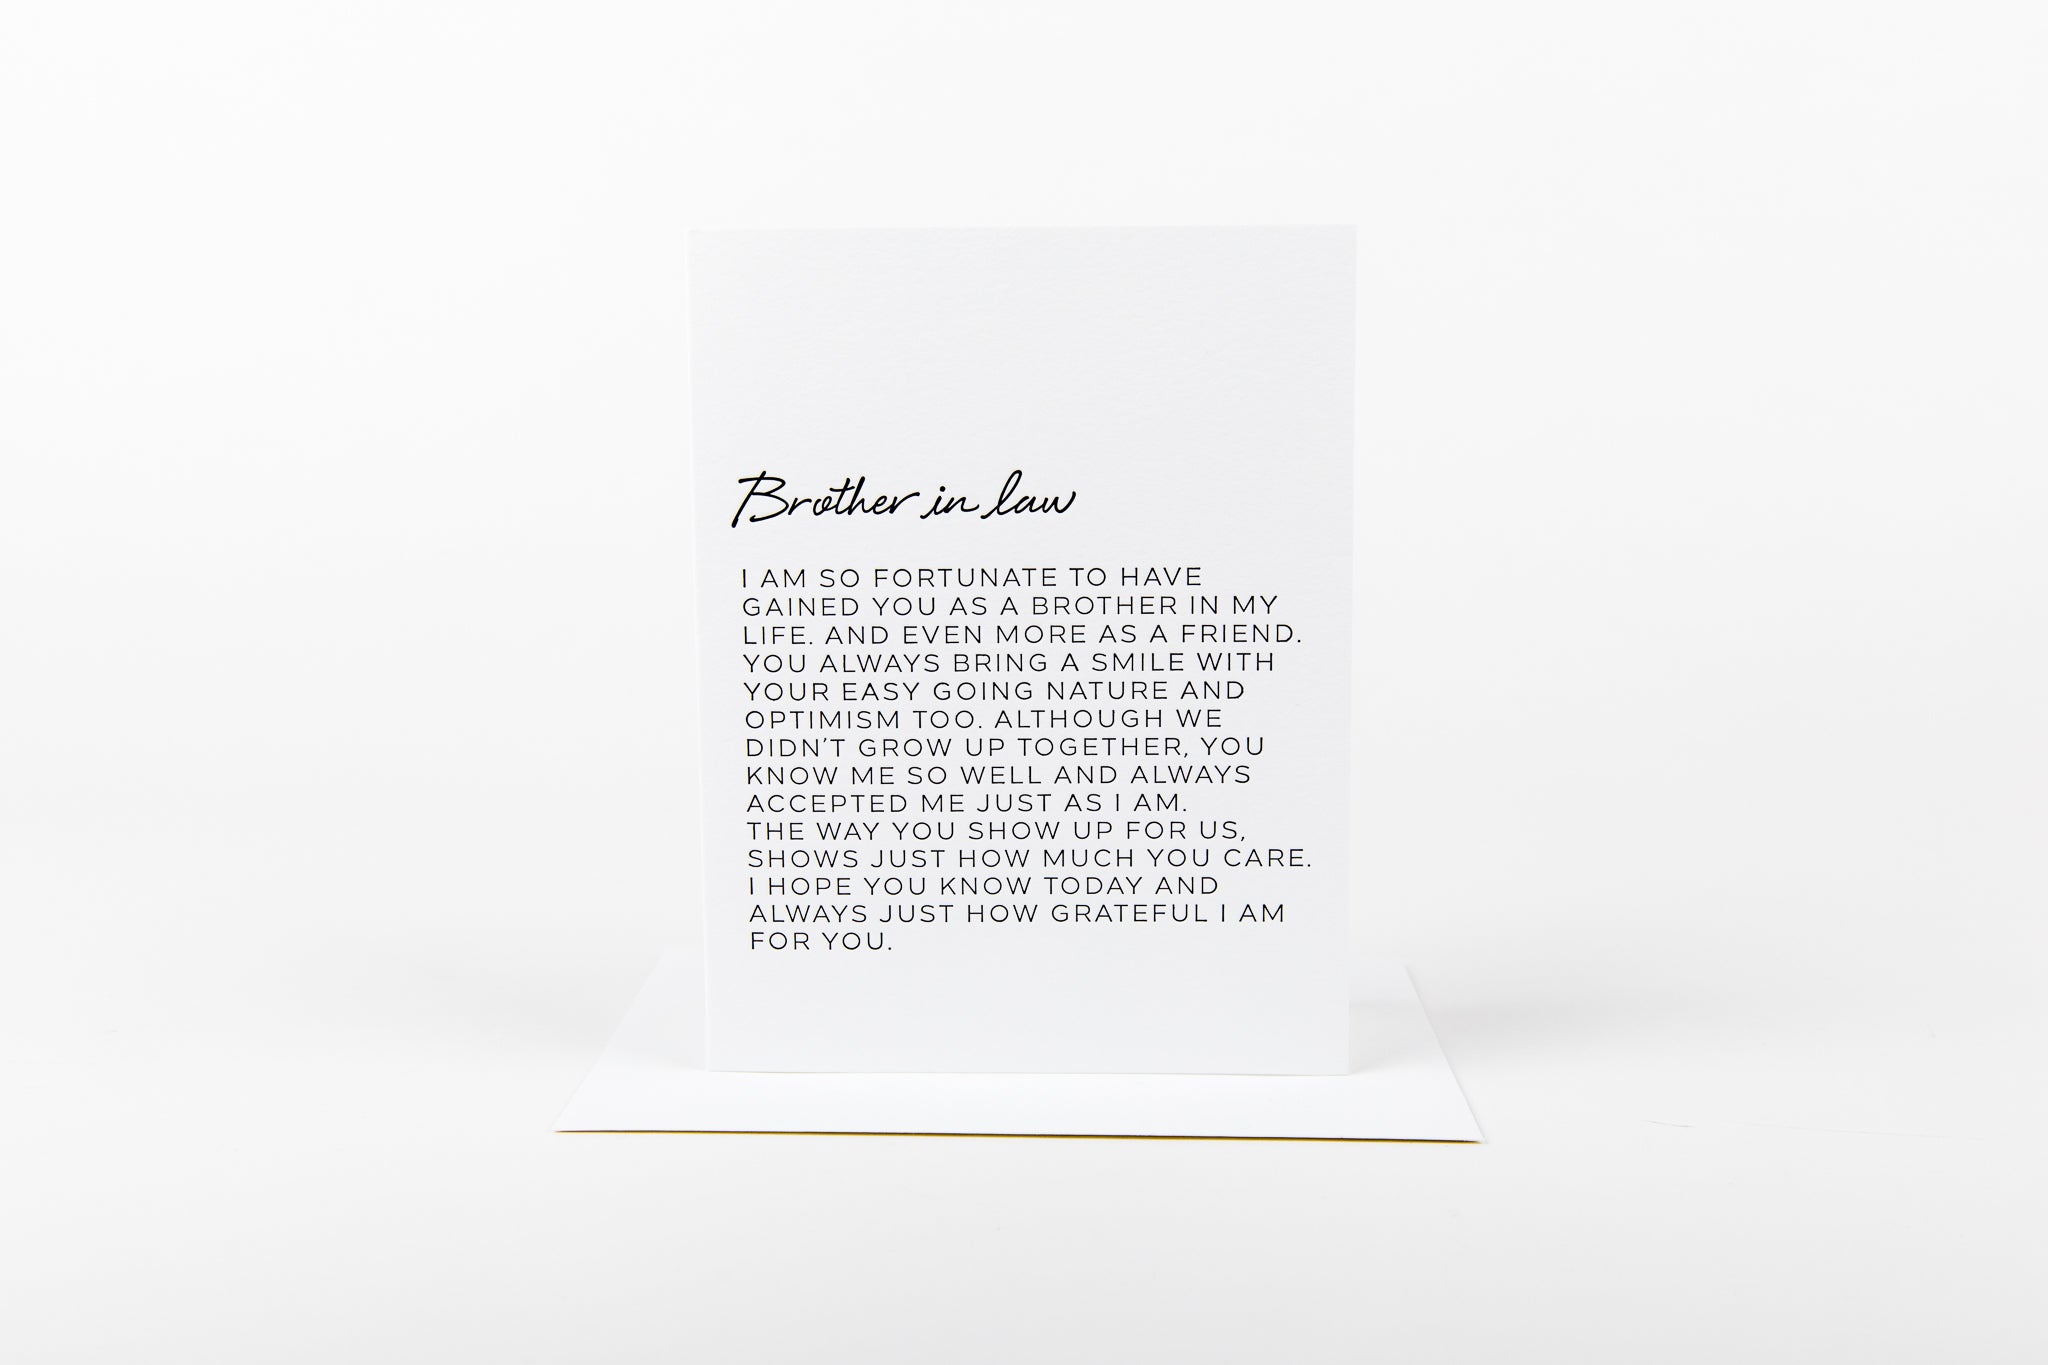 Brother in law
I AM SO FORTUNATE TO HAVE
GAINED YOU AS A BROTHER IN MY
LIFE. AND EVEN MORE AS A FRIEND.
YOU ALWAYS BRING A SMILE WITH
YOUR EASY GOING NATURE AND
OPTIMISM TOO. ALTHOUGH WE
DIDN'T GROW UP TOGETHER, YOU
KNOW ME SO WELL AND ALWAYS
ACCEPTED ME JUST AS I AM.
THE WAY YOU SHOW UP FOR US,
SHOWS JUST HOW MUCH YOU CARE.
I HOPE YOU KNOW TODAY AND
ALWAYS JUST HOW GRATEFUL I AM
FOR YOU.